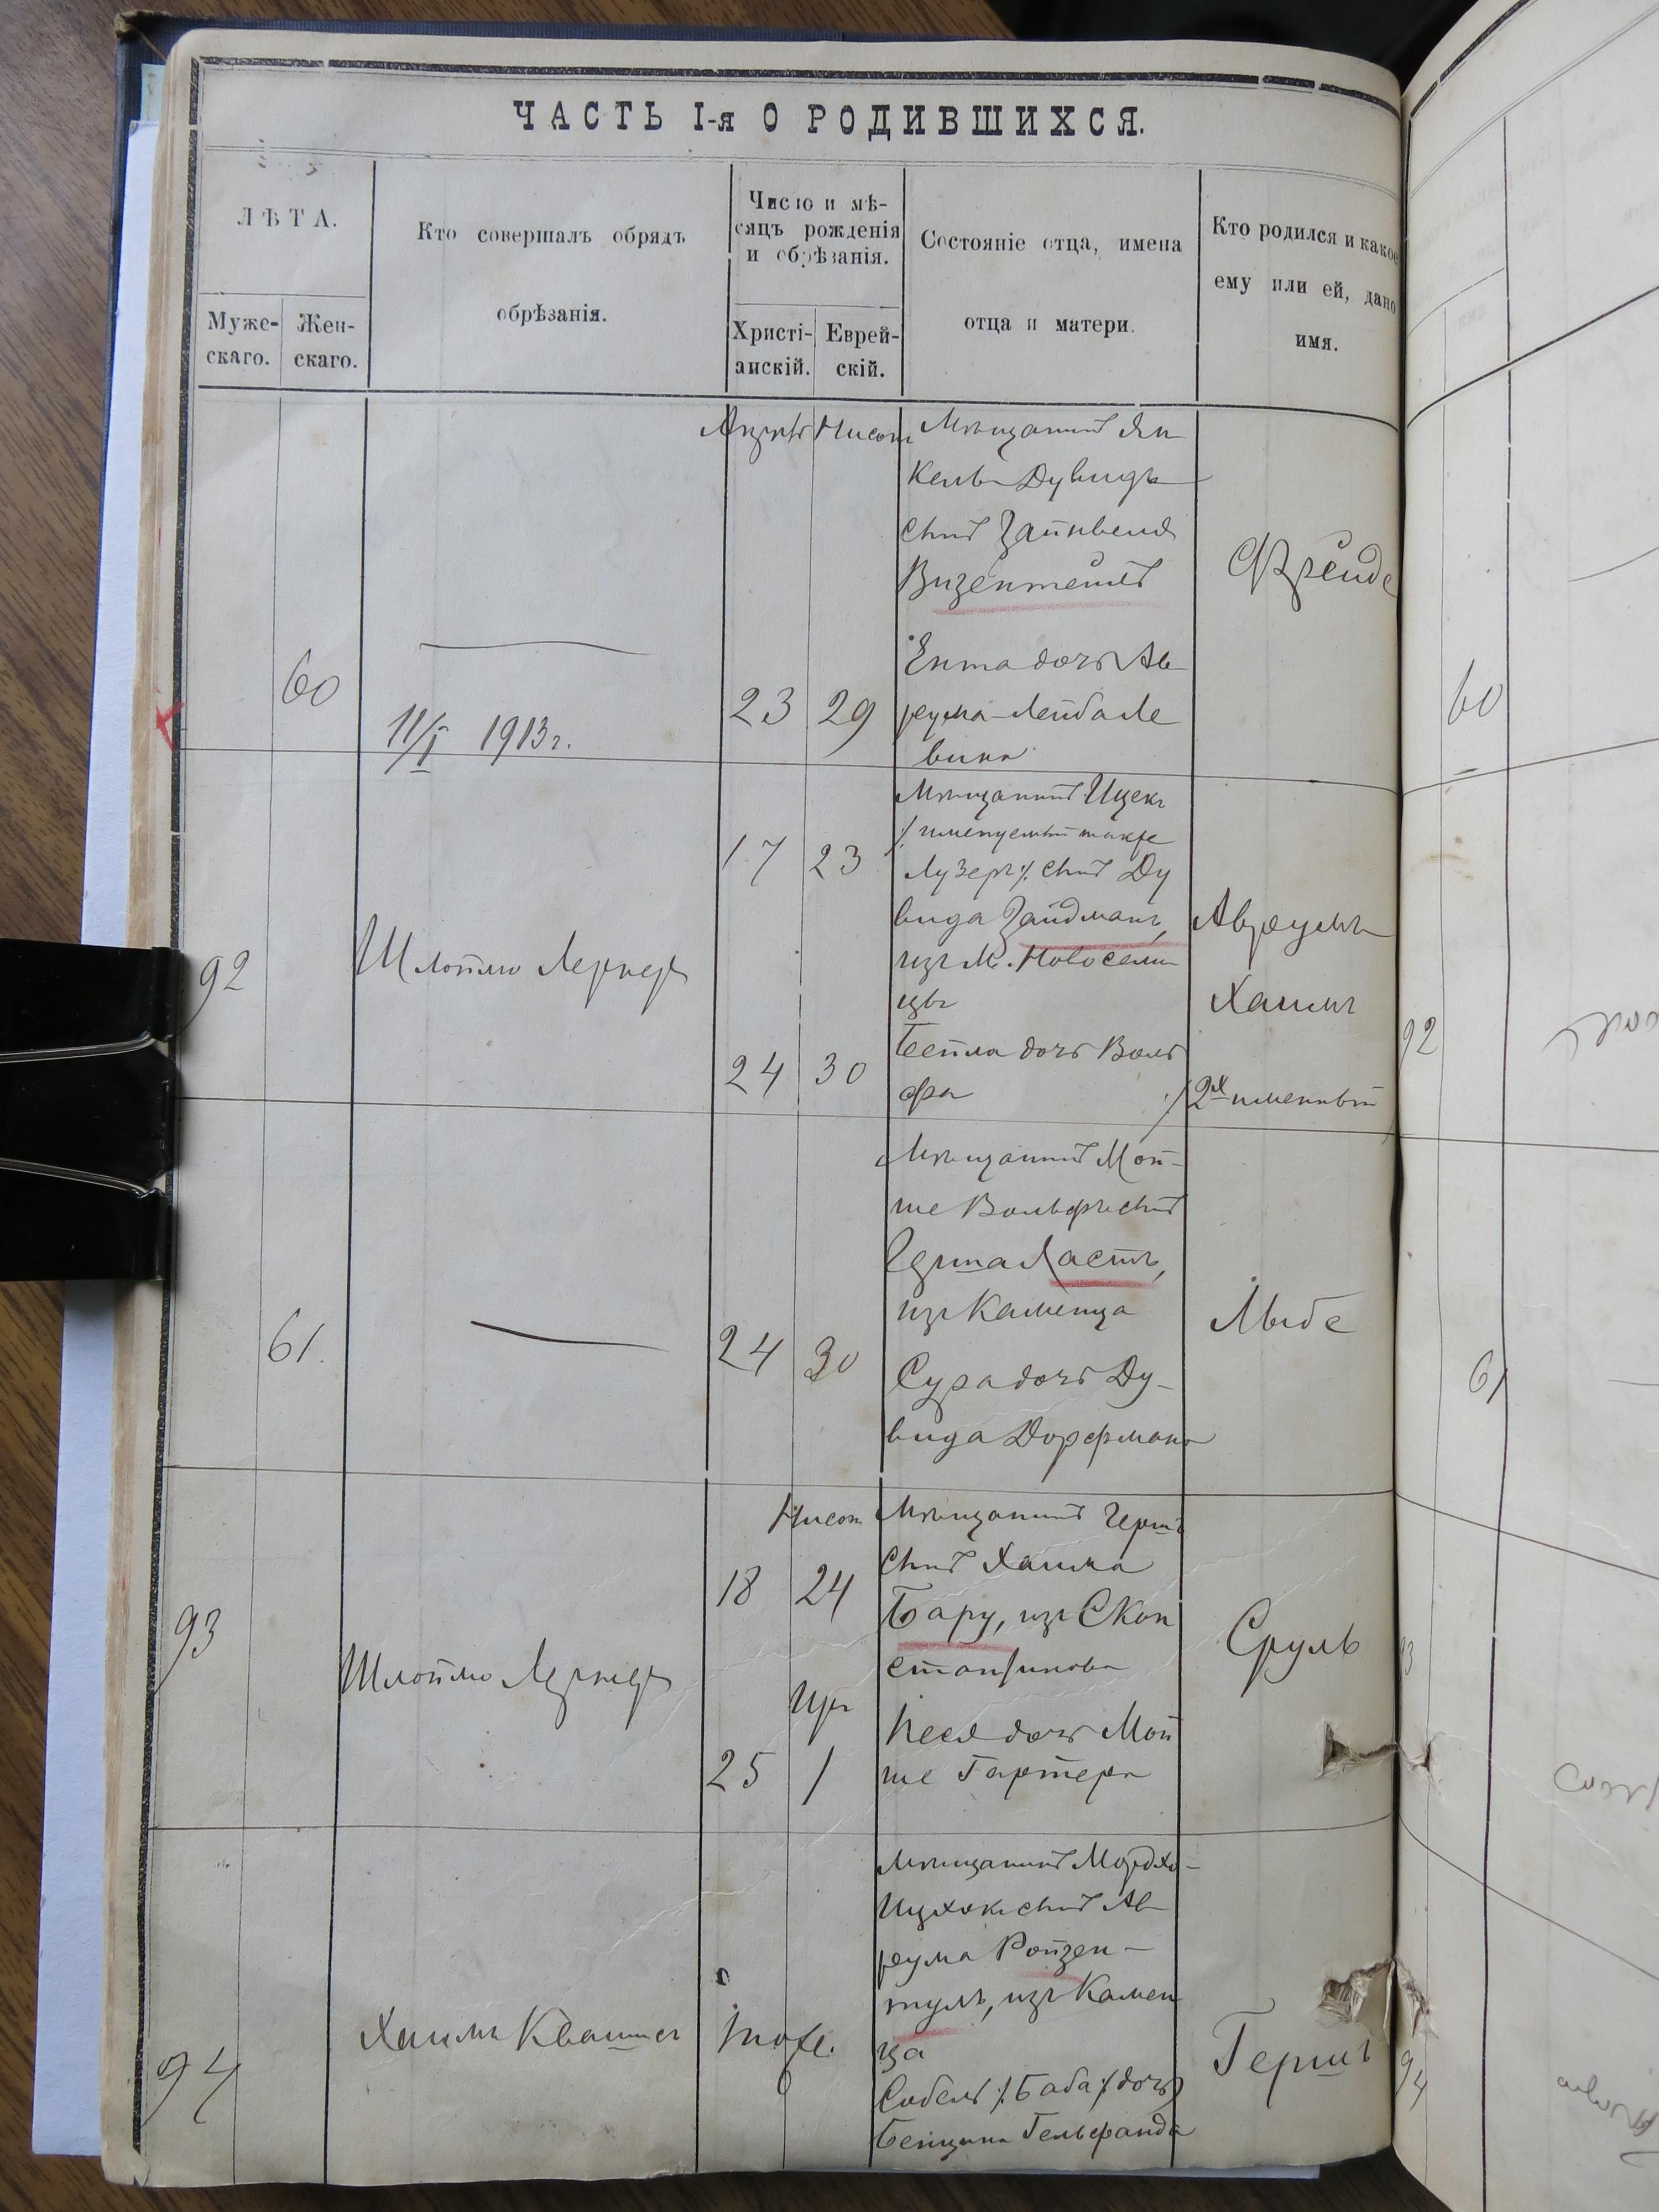 ЧАСТЬ I-я О РОДИВШИХСЯ.
ЛѢТА.
Муже-
скаго.
Жен-
скаго.
Кто совершалъ обрядъ
обрѣзанія.
Число и мѣ-
сяцъ рожденія
и обрѣзанія.
Христі-
анскій.
Еврей-
скій.
Состояніе отца, имена
отца и матери.
Кто родился и какое
ему или ей, дано
имя.
60
11/I 1913 г.
Нисонъ
23 29
Мѣщанинъ Ян
кель Дувидъ
сынъ Зайнвеля
Визентейлъ
Ента дочь Ав
рума-Лейба Ле
вина
Фрейде
60
92
Шлоймо Лернеръ
17 23
24 30
Мѣщанинъ Ицекъ
/: именуемый также
Лузеръ :/ сынъ Ду
вида Зайдманъ,
изъ м. Новосели
цы
Бейла дочь Воль
фа
Аврумъ
Хаимъ
/2х именный
92
61.
24 30
Мѣщанинъ Мой-
ше Вольфъ сынъ
Ластъ,
изъ Каменца
Сура дочь Ду-
вида Дорфмана
61
93
Шлоймо Лернеръ
Нисонъ
18 24
Иръ
25 1
Мѣщанинъ Гершъ
сынъ Хаима
Бару, изъ С Кон
стантинова
Песя дочь Мой
ше Гартера
Сруль
93
94
Хаимъ Квашъ
тоже.
Мѣщанинъ Мордхо-
Ицхокъ сынъ Ав
рума Ройзен-
туль, изъ Камен
ца
Собель /: Баба :/ дочь
Бенциона Гельфанда
Гершъ
94